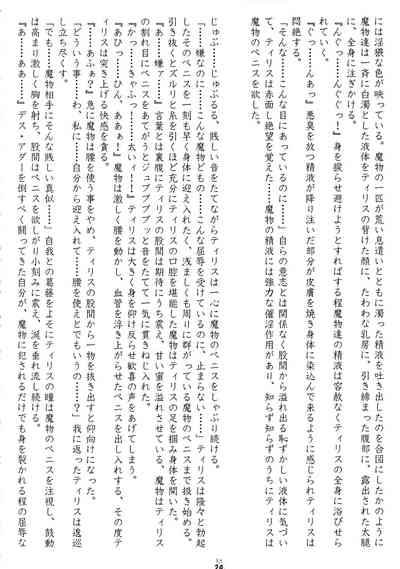 には淫猥な色が映っている。魔物の一匹が荒い息遣いとともに濁った精液を吐き出したのを合図にしたかのように
魔物達は一斉に白濁とした液体をティリスの背けた顔に、たわわな乳房に、引き締まった腹部に、露出された太腿
に、全身に注ぎかける。
『んぐっ…ぐっ…んぐぐっ！』身を捩らせ避けようとすればする程魔物達の精液は容赦なくティリスの全身に浴びせら
れていく。
『ぐっ…んあっ』悪臭を放つ精液が降り注いだ部分が皮膚を焼き身体に染込んで来るように感じられティリスは
悶絶する。
『そんな…こんな目にあっているのに……』自らの意志とは関係なく股間から溢れ出る恥ずかしい液体に気づい
て、ティリスは赤面し絶望を覚えた……魔物の精液には強力な催淫作用があり、知らず知らずのうちにティリスは
魔物のペニスを欲した。
じゅぶ…じゅぶる……、賎しい音をたてながらティリスは一心に魔物のペニスをしゃぶり続ける。
『……嫌なのに…こんな魔物どもの……こんな屈辱を受けているのに、止まらない……』ティリスは隆々と勃起
したそのペニスを一刻も早く身体に迎え入れたく、浅ましくも周りに群がっている魔物のペニスまで扱き始める。
引き抜くとズルリと糸を引くほど充分にティリスの口腔を堪能した魔物はティリスの足を掴み身体を開いた。
『あ…嫌ァ…』言葉とは裏腹にティリスの股間は期待にうち震え、甘い蜜を溢れさせている。魔物はティリス
の割れ目にペニスをあてがうとジュブブブッと音をたてて一気に貫きねじ入れた。
『かっ…きゃふっ…！太いィ…！』ティリスは大きく身を仰け反らせ歓喜の声をあげてしまう。
『あひっ…ひん、ああぁ！』魔物は激しく腰を動かし、血管を浮き上がらせたペニスを出し入れする、その度テ
ィリスは突き上げる快感を貪る。
『…あふぁ？』急に魔物は腰を使う事をやめ、ティリスの股間から一物を抜き出すと仰向けになった。
『どういう事…わ、私に……自分から迎え入れて……腰を使えとでもいうの……？』我に返ったティリスは逡巡
し立ち尽くす。
『…でも……魔物相手にそんな賎しい真似……』自我との葛藤をよそにティリスの瞳は魔物のペニスを注視し、鼓動
は高まり激しく胸を射ち、股間はペニスを欲しがり小刻みに震え、涎を垂れ流し続ける。
『あ…ああ……』デス・アダーを倒すべく闘ってきた自分が、魔物に犯されるだけでも身を裂かれる程の屈辱な